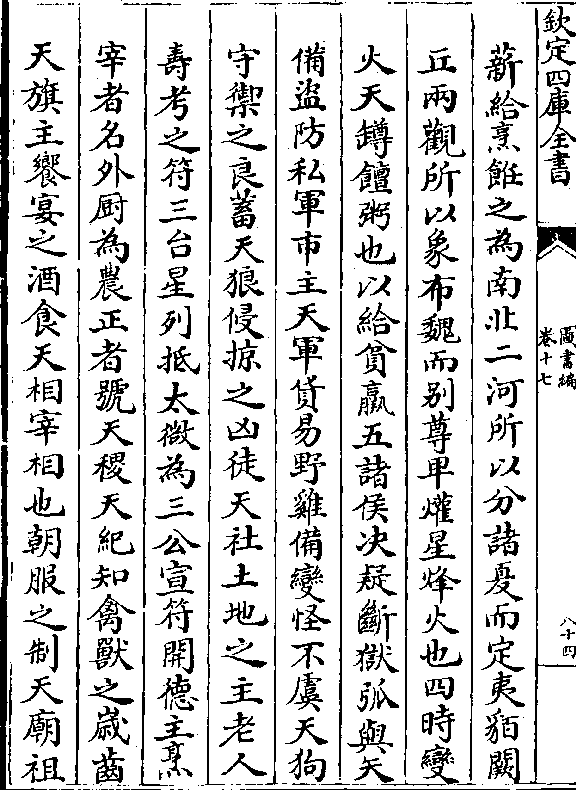 欽定四庫全書
圖書編
卷十七
八十四
薪給烹飪之為南北二河所以分諸夏而定夷貊闕
丘兩觀所以象布魏而别尊卑爟星烽火也四時變
火天罇饘粥也以給貧羸五諸侯决疑斷獄弧與矢
備盜防私軍市主天軍貨易野雞備變怪不虞天狗
守禦之良蓄天狼侵掠之凶徒天社土地之主老人
壽考之符三台星列抵太微為三公宣符開德主烹
宰者名外厨為農正者號天稷天紀知禽獸之嵗齒
天旗主饗宴之酒食天相宰相也朝服之制天廟祖